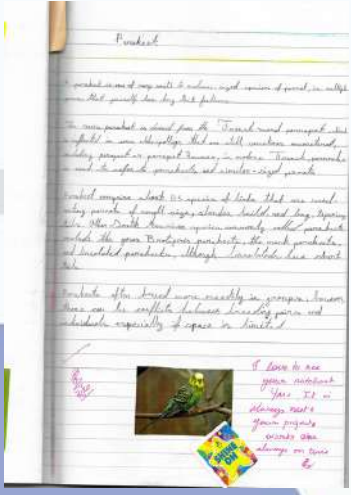 Parakeet
A parakeet is one of many small to medium sized species of parrot, in multiple
that generally has long tail feathers
The name parakeet is derived from the French word perroquet, which
is reflected in some older spellings that are still sometimes encountered,
including paroquet or paraquet. However, in modern French, perruche
is used to refer to parakeets and similar-sized parrots
Parakeet comprise about 115 species of birds that are seed-
eating parrots of small size, slender build, and long, tapering
tails. Other South American species commonly called parakeets
include the genus Brotogeris parakeets, the monk parakeets,
and lineolated parakeets, although lineolateds have short
tails
Parakeets often breed more readily in groups, however
there can be conflicts between breeding pairs and
individuals especially if space is limited
I love to see
your notebook
It is
always neat &
your projects
works are
always on time
SHINE
ON